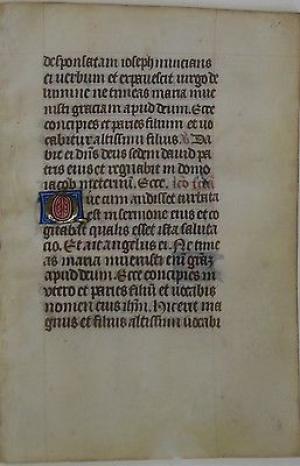 desponsatam ioseph nuncians
ei verbum et expauescit uirgo de
lumine ne timeas maria inue
nisti graciam apud deum. Ecce
concipies et paries filium et uo
cabitur altissimi filius. Da
bit ei dns deus sedem dauid pa
tris eius et regnabit in domo
iacob ineternū. Ecce.
Que cum audisset turbata
est in sermone eius et co
gitabat qualis esset ista saluta
cio. Et ait angelus ei. Ne time
as maria inuenisti enī graz̄
apud deum. Ecce concipies in
vtero et paries filiū et uocabis
nomen eius ihm. Hic erit ma
gnus et filius altissimi uocabi